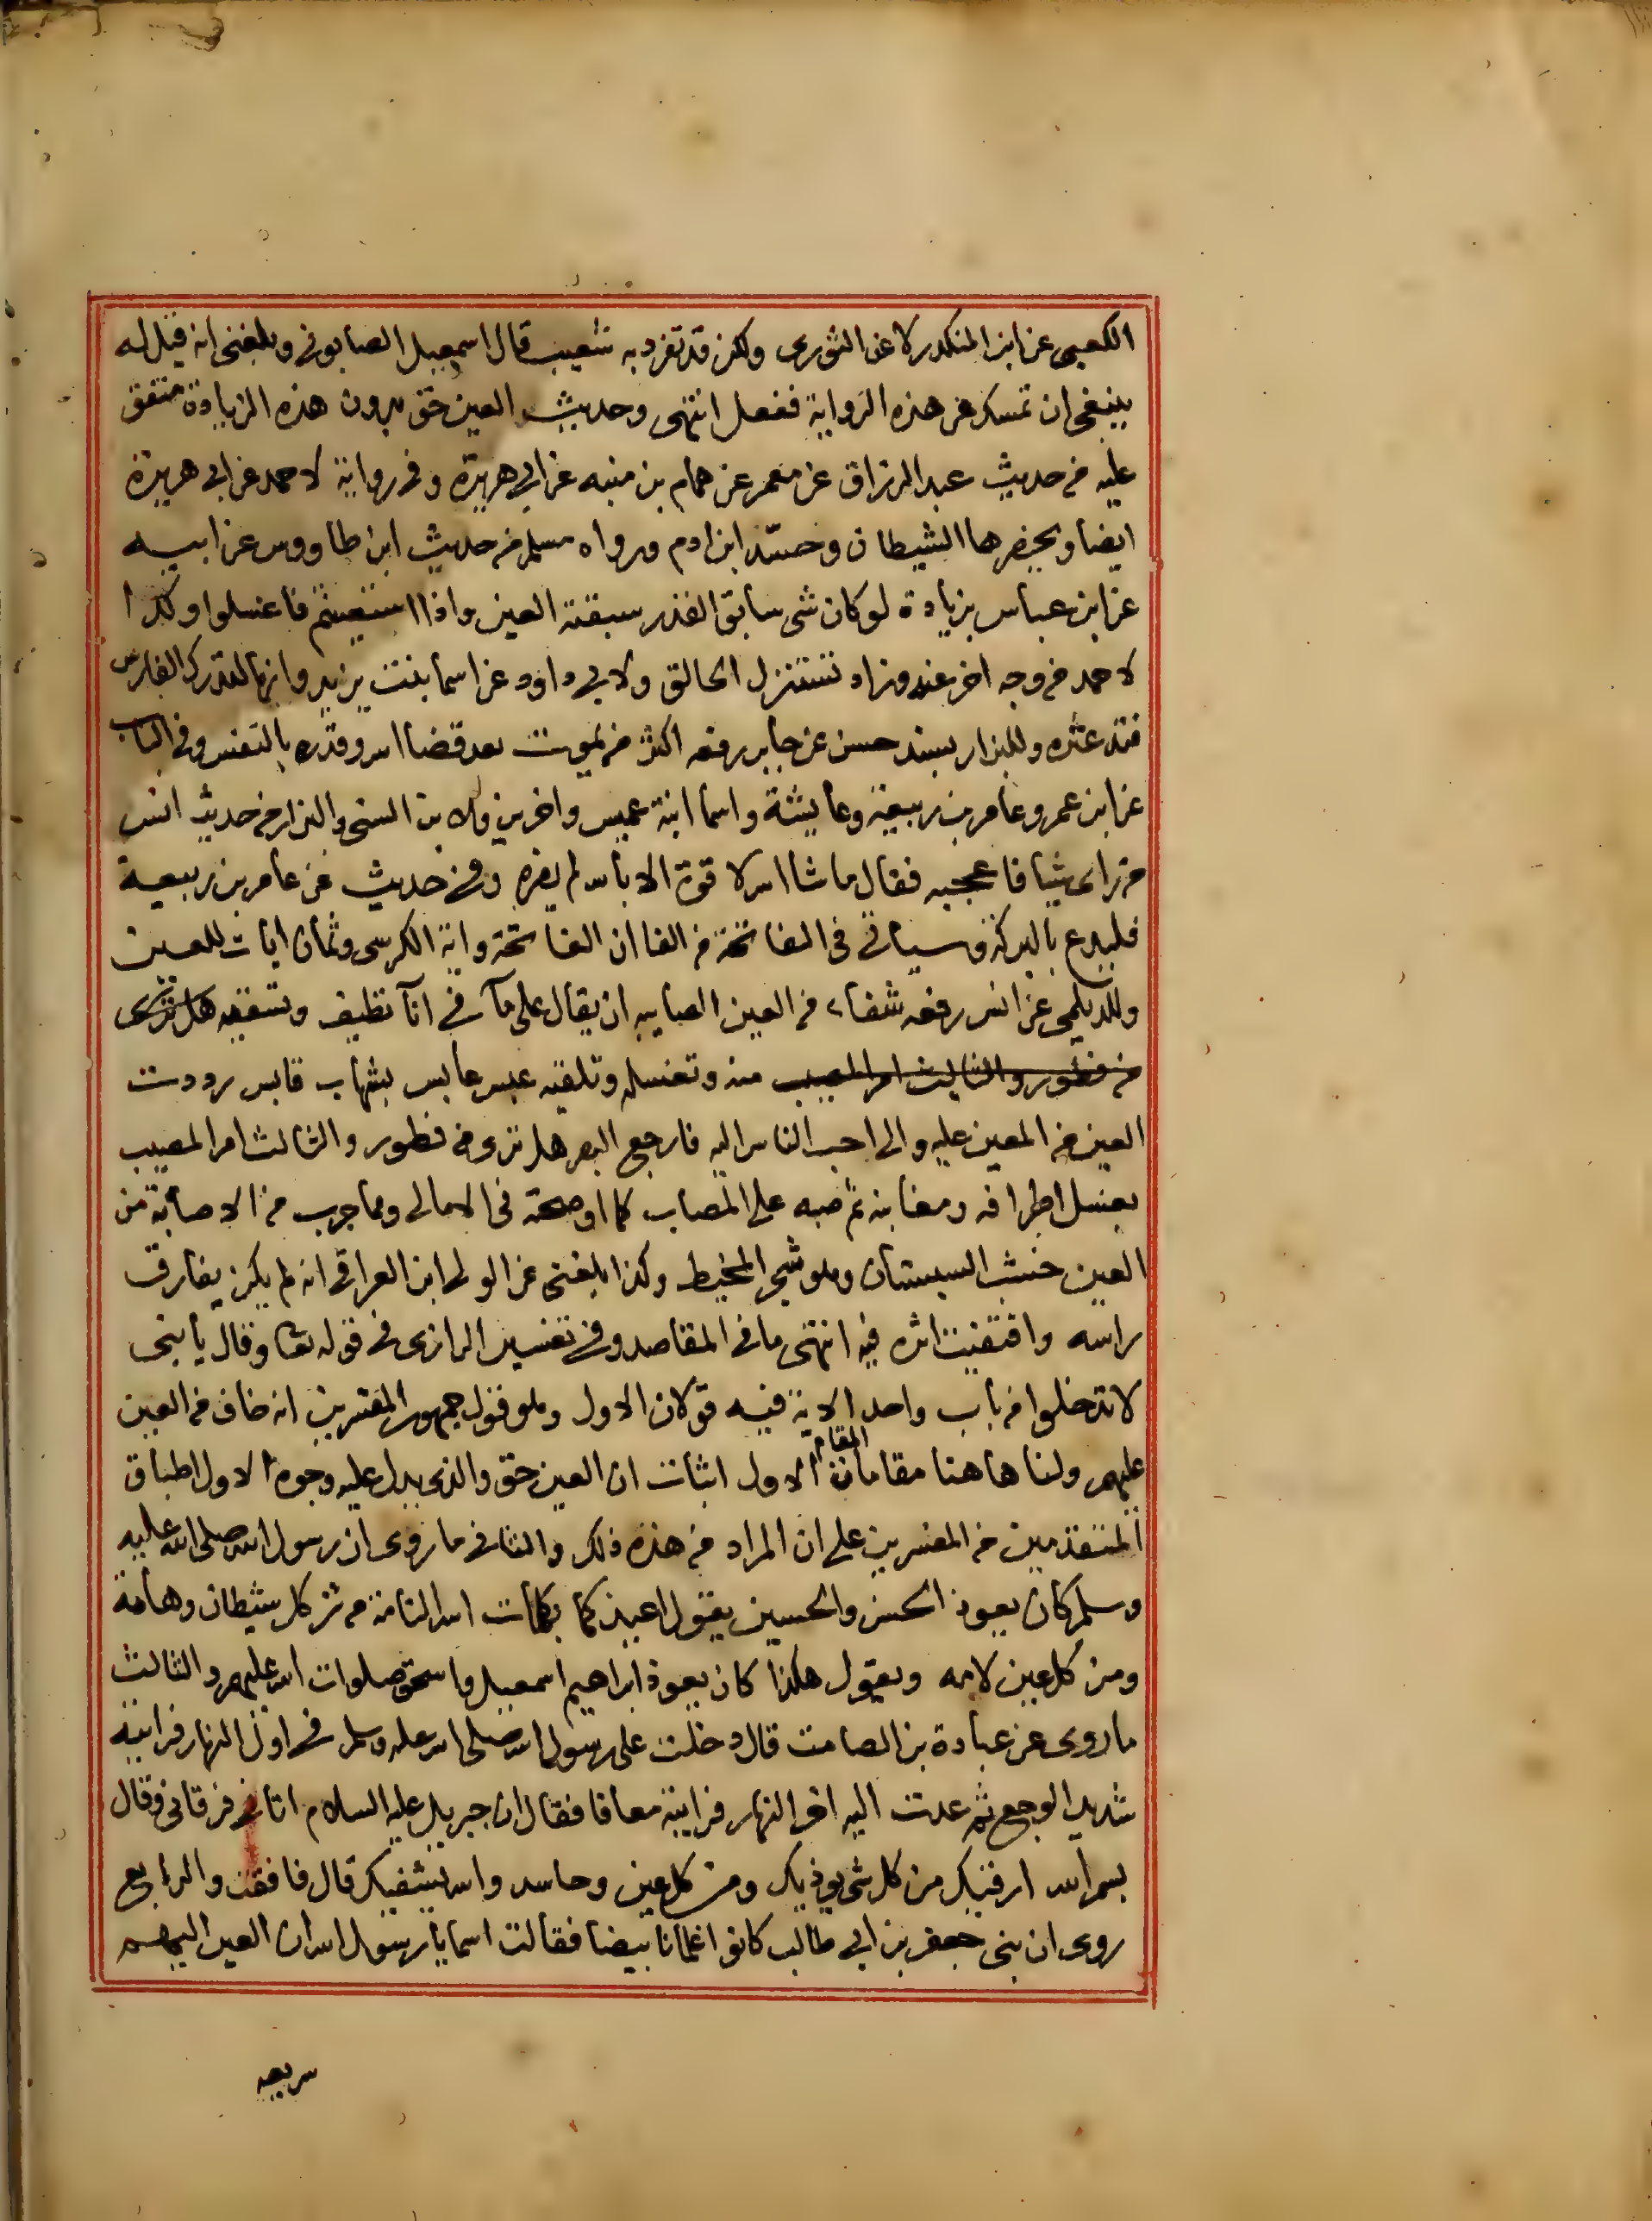 الكعبي عن ابن المنكدر لا عن الثوري ولكن قد تفرد به شعيب قال اسمعيل الصابوني وبلغني انه قيل له
ينبغي ان تمسك عن هذه الرواية ففعل انتهى وحديث العين حق بدون هذه الزيادة متفق
عليه من حديث عبد الرزاق عن معمر عن همام بن منبه عن ابي هريرة وفي رواية لاحمد عن ابي هريرة
ايضا ويحضرها الشيطان وحسد ابن ادم ورواه مسلم من حديث ابن طاووس عن ابيه
عن ابن عباس بزيادة لو كان شي سابق القدر سبقته العين واذا استغسلتم فاغسلوا وكذا
لاحمد من وجه اخر عنه وزاد تستنزل الحالق ولابي داود عن اسما بنت يزيد وانها لتدرك الفارس
فتدعثره وللبزار بسند حسن عن جابر رفعه اكثر من يموت بعد قضا الله وقدره بالنفس وفي الباب
عن ابن عمر وعامر بن ربيعة وعايشة واسما ابنة عميس واخرين ولابن السني والبزار من حديث انس
من راى شيا فاعجبه فقال ما شا الله لا قوة الا بالله لم يضره وفي حديث عن عامر بن ربيعة
فليدع بالبركة وسياتي في الفاتحة من الفا ان الفاتحة واية الكرسي وثمان ايات للعين
وللديلمي عن انس رفعه شفاء من العين الصايبه ان يقال على مآ في انآ نظيف وتسقيه هل ترى
من فطور والثالث امر المصيب منه وتغسله وتلقيه عبس عابس بشهاب قابس رددت
العين من المعين عليه والى احب الناس اليه فارجع البصر هل ترى من فطور والثالث امر المصيب
بغسل اطرافه ومغابنه ثم صبه على المصاب كما اوضحته في الامالي ومما جرب من الاصابة من
العين خشب السبستان وهو شجر المخيط وكذا بلغني عن الولي ابن العراقي انه لم يكن يفارق
راسه واقتفيت اثره فيه انتهى ما في المقاصد وفي تفسير الرازي في قوله تعا وقال يا بني
لا تدخلوا من باب واحد الاية فيه قولان الاول وهو قول جمهور المفسرين انه خاف من العين
عليهم ولنا هاهنا مقامان المقام الاول اثبات ان العين حق والذي يدل عليه وجوه الاول اطباق
المتقدمين من المفسرين على ان المراد من هذه ذلك والثاني ما روى ان رسول الله صلى الله عليه
وسلم كان يعوذ الحسن والحسين يقول اعيذكما بكلمات الله التامة من شر كل شيطان وهامة
ومن كل عين لامه ويقول هكذا كان يعوذ ابراهيم اسمعيل واسحق صلوات الله عليهم والثالث
ما روى عن عبادة بن الصامت قال دخلت على رسول الله صلى الله عليه وسلم في اول النهار فرايته
شديد الوجع ثم عدت اليه اخر النهار فرايته معافا فقال ان جبريل عليه السلام اتاني فرقاني وقال
بسم الله ارقيك من كل شي يوذيك ومن كل عين وحاسد والله يشفيك قال فافقت والرابع
روى ان بني جعفر بن ابي طالب كانوا غلمانا بيضا فقالت اسما يا رسول الله ان العين اليهم
سريعه